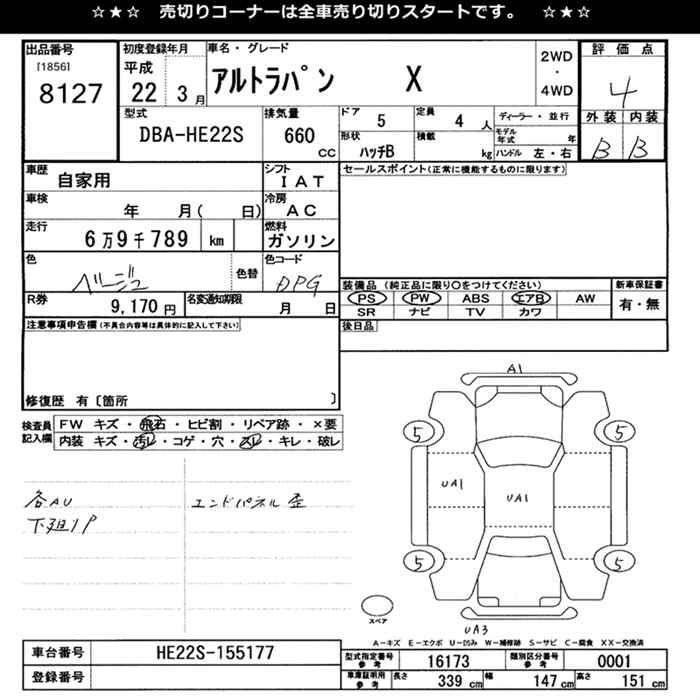 ☆★☆ 売切りコーナーは全車売り切りスタートです。 ☆★☆
出品番号 [1856] 8127
初度登録年月 平成 22 3月
車名・グレード アルトラパン X
2WD ・ 4WD
評価点 4
外装 B 内装 B
型式 DBA-HE22S
排気量 660 cc
ドア 5
定員 4 人
形状 ハッチB
積載 kg
ディーラー・並行
モデル年式 年
ハンドル 左・右
車歴 自家用
シフト IAT
セールスポイント(正常に機能するものに限ります)
車検 年 月( 日)
冷房 AC
走行 6万9千789 km
燃料 ガソリン
色 ベージュ 色替
色コード DPG
R券 9,170円
名変通知期限 月 日
装備品 (純正品に限り○をつけてください)
PS PW ABS エアB AW
SR ナビ TV カワ
新車保証書 有・無
後日品
注意事項申告欄(不具合内容等は具体的に記入して下さい)
修復歴 有〔箇所 〕
検査員記入欄
FW キズ・飛石・ヒビ割・リペア跡・×要
内装 キズ・汚レ・コゲ・穴・スレ・キレ・破レ
各AU
下廻りP
エンドパネル歪
A1
5 5
UA1 UA1
5 5
スペア
UA3
A−キズ E−エクボ U−凹み W−補修跡 S−サビ C−腐食 XX−交換済
車台番号 HE22S-155177
登録番号
型式指定番号 参考 16173
類別区分番号 参考 0001
車庫証明用 参考 長さ 339 cm 幅 147 cm 高さ 151 cm